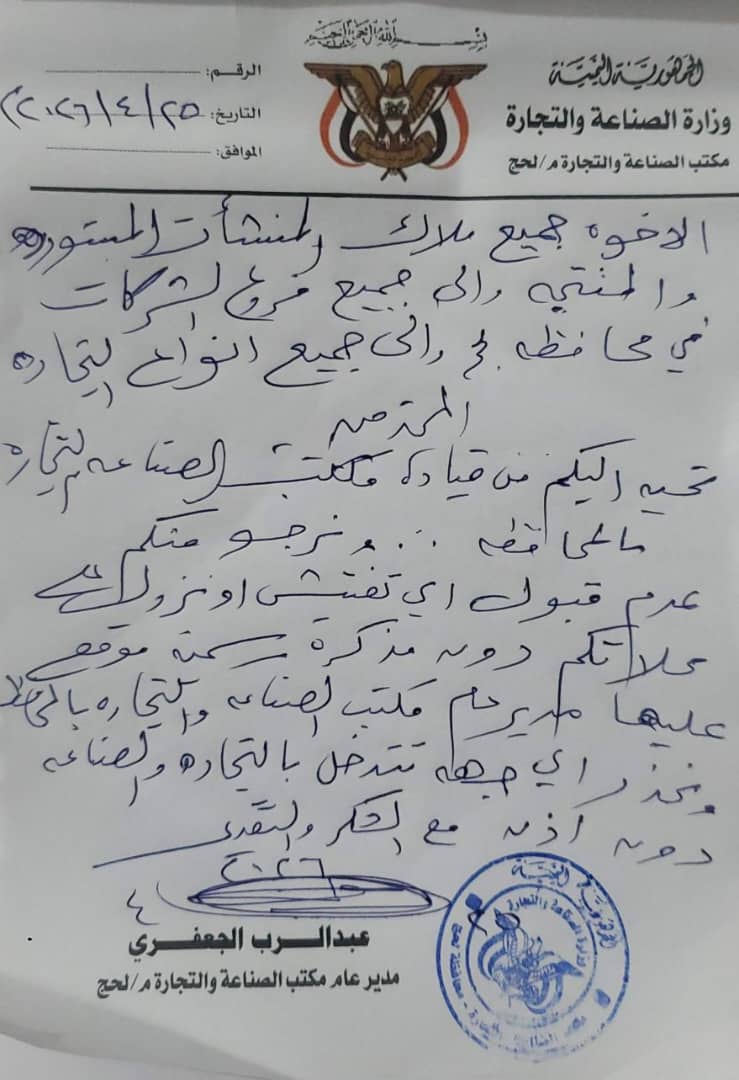 بسم الله الرحمن الرحيم
الجمهورية اليمنية
وزارة الصناعة والتجارة
مكتب الصناعة والتجارة م/لحج
الرقم:
التاريخ: ٢٥/٤/٢٠٢٦
الموافق:
الاخوه جميع ملاك المنشأت المستورده
والمنتجه والى جميع فروع الشركات
في محافظه لحج والى جميع انواع التجاره
المحترمين
تحيه اليكم من قيادة مكتب الصناعه والتجاره
بالمحافظه ... ونرجو منكم
عدم قبول اي تفتيش او نزول على
محلاتكم دون مذكرة رسمية موقع
عليها مدير عام مكتب الصناعه والتجاره بالمحافظه
ونحذر اي جهه تتدخل بالتجاره والصناعه
دون اذن مع الشكر والتقدير
٢٠٢٦
٤
عبدالرب الجعفري
مدير عام مكتب الصناعة والتجارة م/لحج
الجمهورية اليمنية
وزارة الصناعة والتجارة